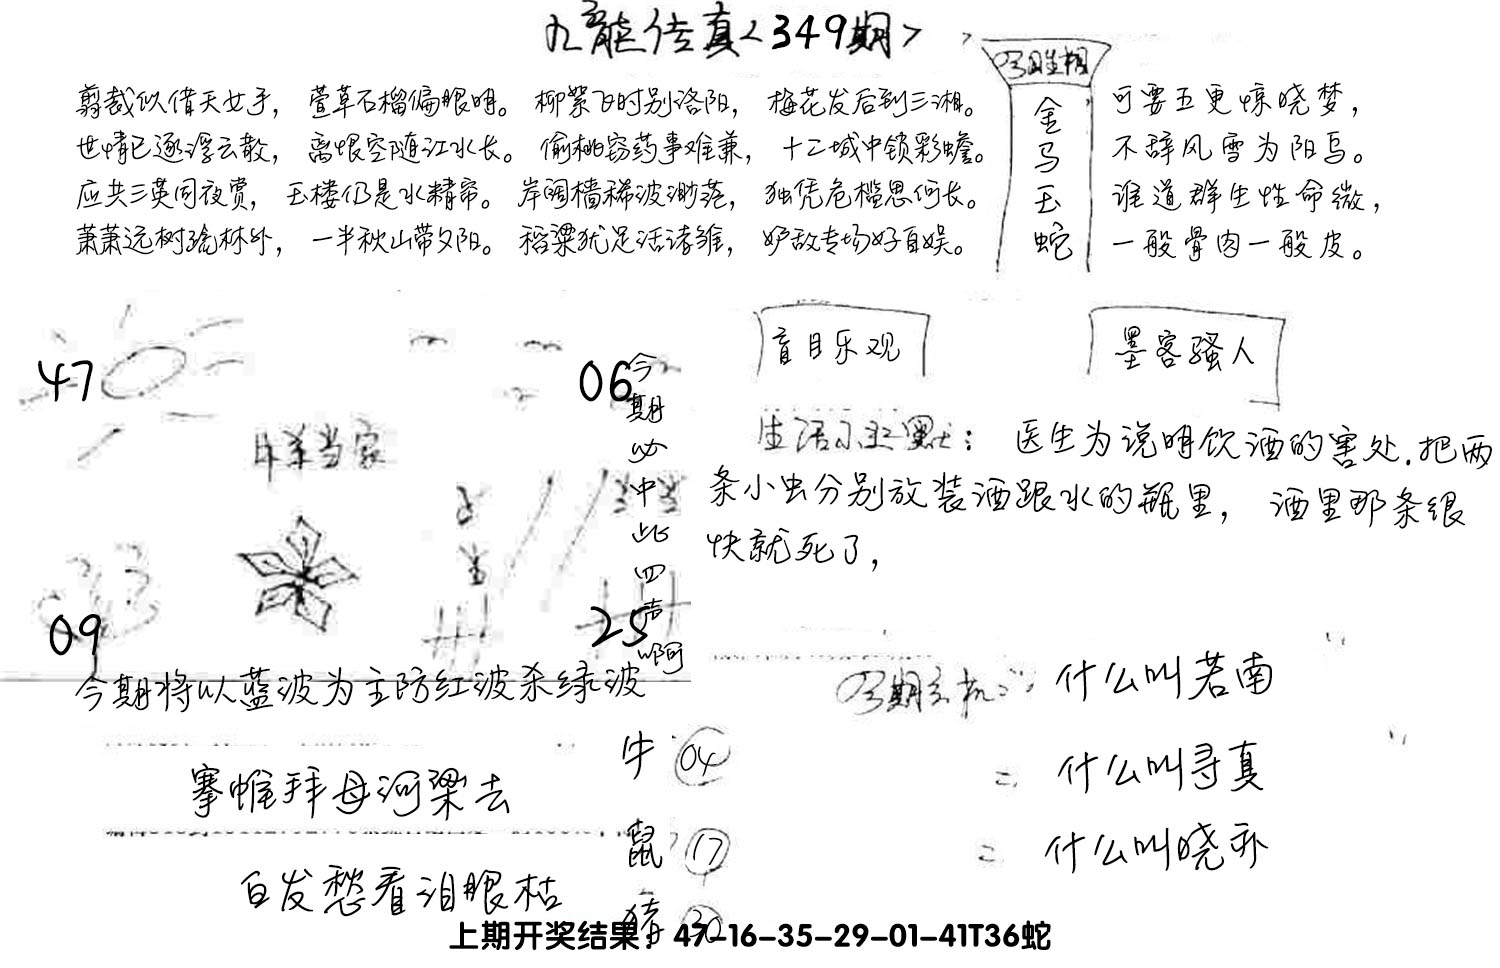 九龙传真<349期>
剪裁似借天女手，萱草石榴偏眼明。柳絮飞时别洛阳，梅花发后到三湘。
世情已逐浮云散，离恨空随江水长。偷桃窃药事难兼，十二城中锁彩蟾。
应共三英同夜赏，玉楼仍是水精帘。岸阔樯稀波渺茫，独凭危槛思何长。
萧萧远树疏林外，一半秋山带夕阳。稻粱犹足活诸雏，妒敌专场好自娱。
金
马
玉
蛇
可要五更惊晓梦，
不辞风雪为阳乌。
谁道群生性命微，
一般骨肉一般皮。
47
06
09
25
今期必中此四肖啊
今期将以蓝波为主防红波杀绿波
盲目乐观
墨客骚人
生活小幽默：医生为说明饮酒的害处.把两
条小虫分别放装酒跟水的瓶里，酒里那条很
快就死了，
什么叫若南
什么叫寻真
什么叫晓亦
搴帷拜母河梁去
白发愁看泪眼枯
牛 04
鼠 17
猪 30
上期开奖结果：47-16-35-29-01-41T36蛇